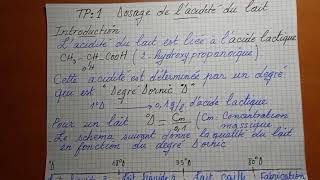 TP: 1 Dosage de l'acidité du lait
Introduction
L'acidité du lait est liée à l'acide lactique
CH3 - CH - COOH ( 2 - hydroxypropanoique)
OH
Cette acidité est déterminée par un degré
qui est "Degré Dornic "D"
1°D → 0,1g/l d'acide lactique
Pour un lait °D = Cm / 0,1 (Cm: Concentration massique)
- Le schema suivant donne la qualité du lait
en fonction du degré Dornic
18°D 55°D 80°D
lait liquide lait caillé Fabrication